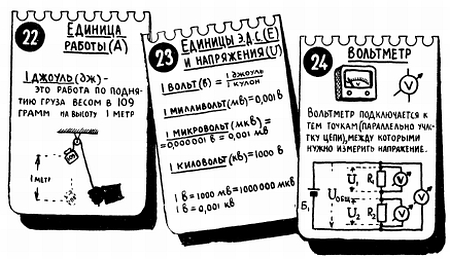 22
ЕДИНИЦА
РАБОТЫ (А)
1 ДЖОУЛЬ (ДЖ) -
ЭТО РАБОТА ПО ПОДНЯ-
ТИЮ ГРУЗА ВЕСОМ В 109
ГРАММ НА ВЫСОТУ 1 МЕТР
1 МЕТР
23
ЕДИНИЦЫ Э.Д.С.(Е)
И НАПРЯЖЕНИЯ (U)
1 ВОЛЬТ (В) = 1 ДЖОУЛЬ / 1 КУЛОН
1 МИЛЛИВОЛЬТ (МВ) = 0,001 В
1 МИКРОВОЛЬТ (МКВ) =
= 0,000001 В = 0,001 МВ
1 КИЛОВОЛЬТ (КВ) = 1000 В
1 В = 1000 МВ = 1000000 МКВ
1 В = 0,001 КВ
24
ВОЛЬТМЕТР
V
ВОЛЬТМЕТР ПОДКЛЮЧАЕТСЯ К
ТЕМ ТОЧКАМ (ПАРАЛЛЕЛЬНО УЧАС-
ТКУ ЦЕПИ), МЕЖДУ КОТОРЫМИ
НУЖНО ИЗМЕРИТЬ НАПРЯЖЕНИЕ.
U1 R1 V
Б1 UОБЩ V
U2 R2 V